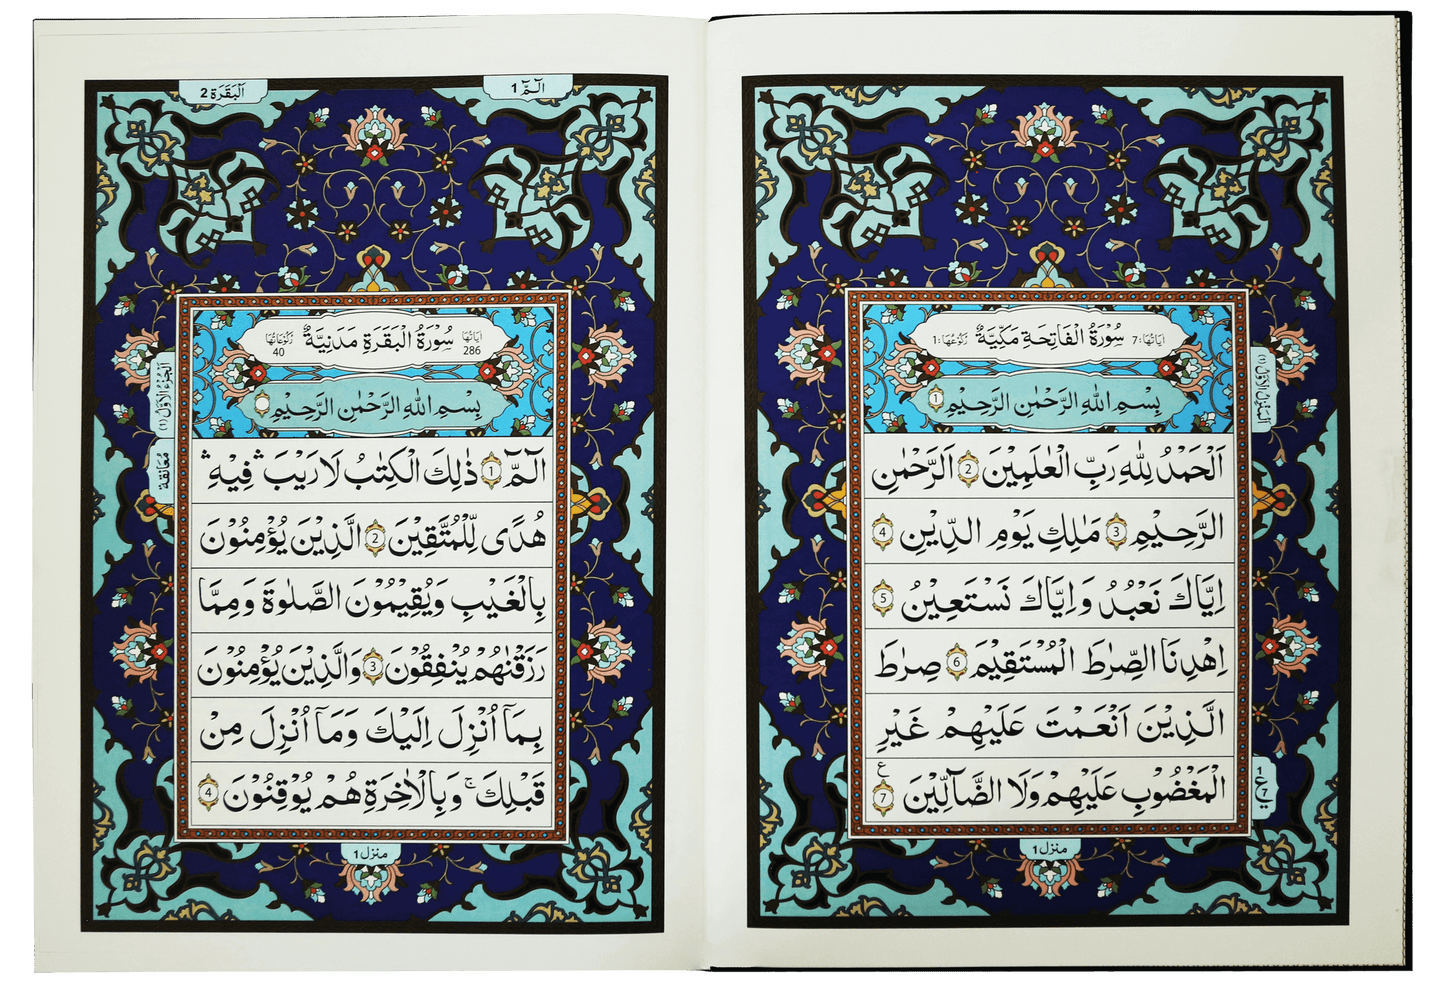 اٰيَاتُهَا: 7 سُوْرَةُ الْفَاتِحَةِ مَكِّيَّةٌ رُكُوْعُهَا: 1
بِسْمِ اللهِ الرَّحْمٰنِ الرَّحِيْمِ 1
اَلْحَمْدُ لِلّٰهِ رَبِّ الْعٰلَمِيْنَ 2 اَلرَّحْمٰنِ
الرَّحِيْمِ 3 مٰلِكِ يَوْمِ الدِّيْنِ 4
اِيَّاكَ نَعْبُدُ وَاِيَّاكَ نَسْتَعِيْنُ 5
اِهْدِنَا الصِّرَاطَ الْمُسْتَقِيْمَ 6 صِرَاطَ
الَّذِيْنَ اَنْعَمْتَ عَلَيْهِمْ غَيْرِ
الْمَغْضُوْبِ عَلَيْهِمْ وَلَا الضَّآلِّيْنَ 7 ع
اَلْمَنْزِلُ الْاَوَّلُ (1)
1 ع 7
منزل 1
الٓمّٓ 1
اَلْبَقَرَة 2
اٰيَاتُهَا 286 سُوْرَةُ الْبَقَرَةِ مَدَنِيَّةٌ رُكُوْعَاتُهَا 40
بِسْمِ اللهِ الرَّحْمٰنِ الرَّحِيْمِ
الٓمّٓ 1 ذٰلِكَ الْكِتٰبُ لَا رَيْبَ ۛ فِيْهِ ۛ
هُدًى لِّلْمُتَّقِيْنَ 2 الَّذِيْنَ يُؤْمِنُوْنَ
بِالْغَيْبِ وَيُقِيْمُوْنَ الصَّلٰوةَ وَمِمَّا
رَزَقْنٰهُمْ يُنْفِقُوْنَ 3 وَالَّذِيْنَ يُؤْمِنُوْنَ
بِمَآ اُنْزِلَ اِلَيْكَ وَمَآ اُنْزِلَ مِنْ
قَبْلِكَ ۚ وَبِالْاٰخِرَةِ هُمْ يُوْقِنُوْنَ 4
اَلْجُزْءُ الْاَوَّلُ (1)
مُعَانَقَة
منزل 1